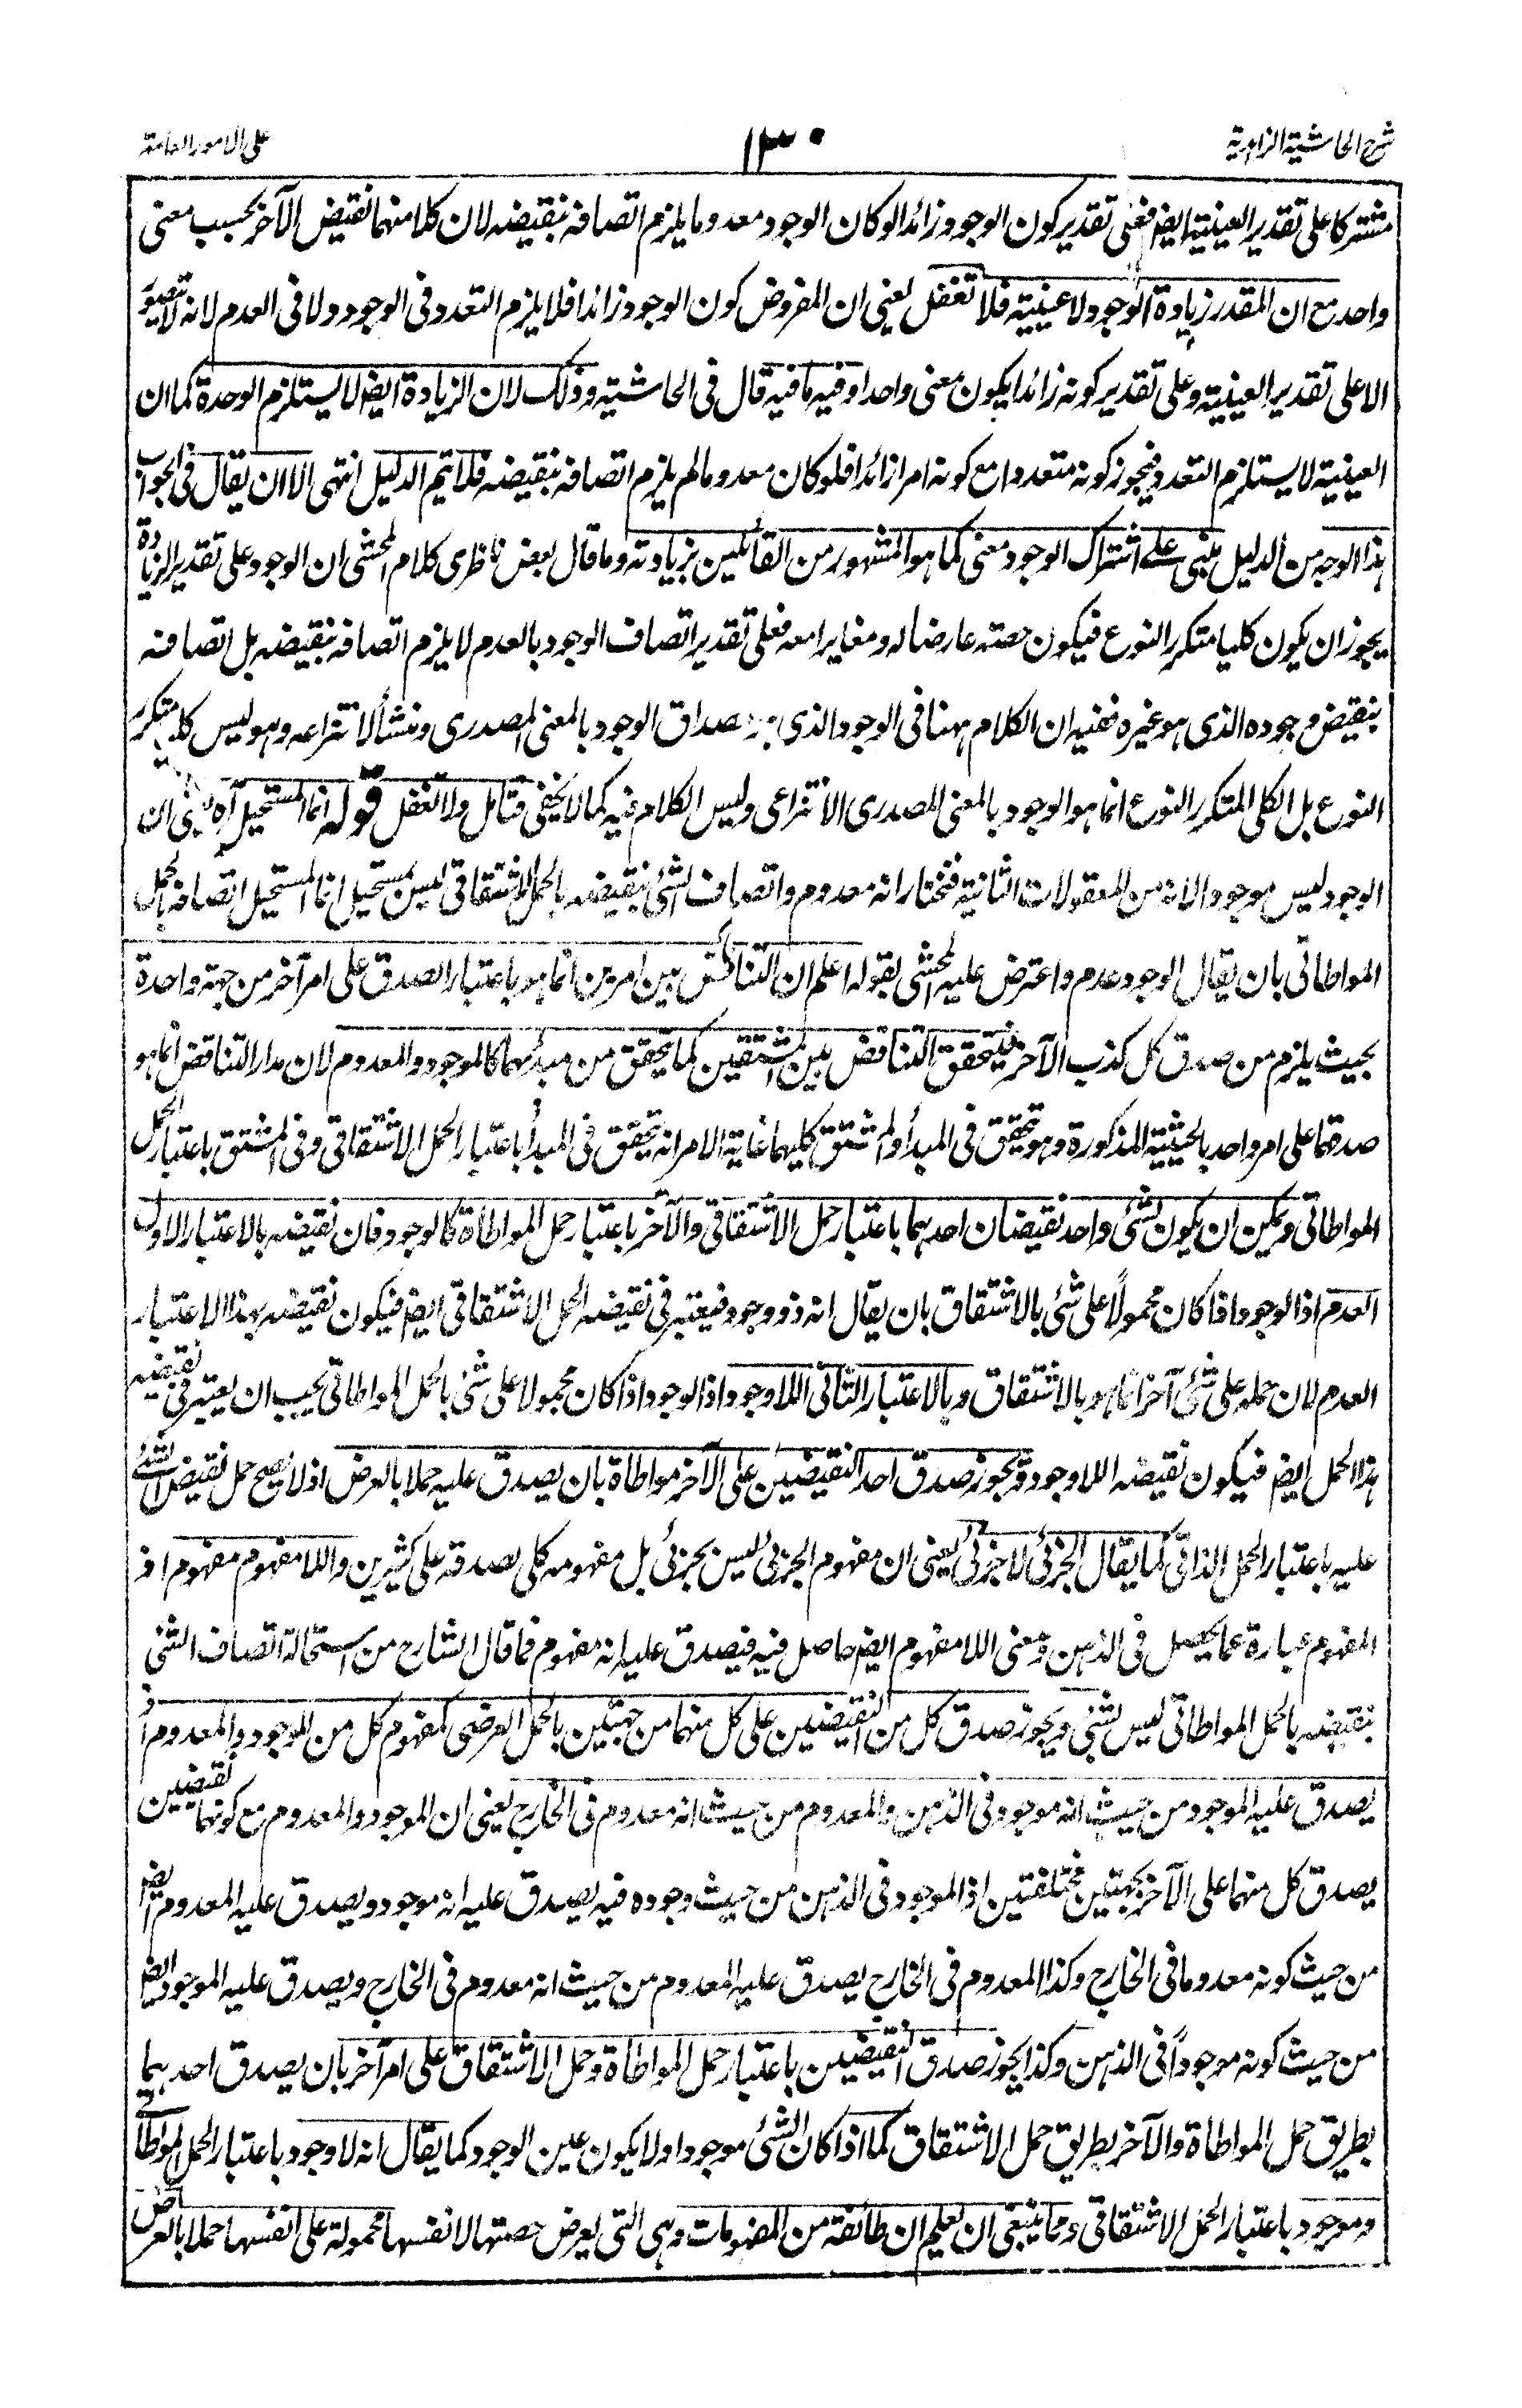 شرح الحاشية الزاهدية
١٣٠
على الامور العامة
مشتركا على تقدير العينية ايضا فعلى تقدير كون الوجود زائدا لو كان الوجود معدوما يلزم اتصافه بنقيضه لان كلا منهما نقيض الآخر بحسب معنى
واحد مع ان المقدر زيادة الوجود لا عينيته فلا تغفل يعنى ان المفروض كون الوجود زائدا فلا يلزم التعدد فى الوجود ولا فى العدم لانه لا يتصور
الا على تقدير العينية وعلى تقدير كونه زائدا يكون معنى واحدا وفيه ما فيه قال فى الحاشية وذلك لان الزيادة ايضا لا يستلزم الوحدة كما ان
العينية لا يستلزم التعدد فيجوز كونه متعددا مع كونه امرا زائدا فلو كان معدوما لم يلزم اتصافه بنقيضه فلا يتم الدليل انتهى الا ان يقال فى الجواب
هذا الوجه من الدليل مبنى على اشتراك الوجود معنى كما هو المشهور من القائلين بزيادته وما قال بعض ناظرى كلام المحشى ان الوجود على تقدير الزيادة
يجوز ان يكون كليا متكرر النوع فيكون حصته عارضا له ومغايرا معه فعلى تقدير اتصاف الوجود بالعدم لا يلزم اتصافه بنقيضه بل اتصافه
بنقيض وجوده الذى هو غيره ففيه ان الكلام ههنا فى الوجود الذى مصداق الوجود بالمعنى المصدرى ومنشأ لانتزاعه وهو ليس كليا متكرر
النوع بل الكلى المتكرر النوع انما هو الوجود بالمعنى المصدرى الانتزاعى وليس الكلام فيه كما لا يخفى فتأمل ولا تغفل قوله انما المستحيل آه يعنى ان
الوجود ليس موجودا لانه من المعقولات الثانية فنختار انه معدوم واتصاف الشئ بنقيضه بالحمل الاشتقاقى ليس بمستحيل انما المستحيل اتصافه بالحمل
المواطاتى بان يقال الوجود عدم واعترض عليه المحشى بقوله اعلم ان التناقض بين امرين انما هو باعتبار الصدق على امر آخر من جهة واحدة
بحيث يلزم من صدق كل كذب الآخر فيتحقق التناقض بين المشتقين كما يتحقق من مبدئهما كالموجود والمعدوم لان مدار التناقض انما هو
صدقهما على امر واحد بالحيثية المذكورة وهو تحقق فى المبدأ والمشتق كليهما غاية الامر انه تحقق فى المبدأ باعتبار الحمل الاشتقاقى وفى المشتق باعتبار الحمل
المواطاتى ويمكن ان يكون لشئ واحد نقيضان احدهما باعتبار حمل الاشتقاقى والآخر باعتبار حمل المواطاة كالوجود فان نقيضه بالاعتبار الاول
العدم اذ الوجود اذا كان محمولاً على شئ بالاشتقاق بان يقال انه ذو وجود فيعتبر فى نقيضه الحمل الاشتقاقى ايضا فيكون نقيضه بهذا الاعتبار
العدم لان حمله على شئ آخر انما هو بالاشتقاق وبالاعتبار الثانى اللا وجود اذ الوجود اذا كان محمولا على شئ بالحمل المواطاتى يجب ان يعتبر فى نقيضه
هذا الحمل ايضا فيكون نقيضه اللا وجود ويجوز صدق احد النقيضين على الآخر مواطاة بان يصدق عليه حملا بالعرض اذ لا يصح حمل نقيض الشئ
عليه باعتبار الحمل الذاتى كما يقال الجزئى لا جزئى يعنى ان مفهوم الجزئى ليس بجزئى بل مفهومه كلى بصدقه على كثيرين واللا مفهوم مفهوم اذ
المفهوم عبارة عما يحصل فى الذهن ومعنى اللا مفهوم ايضا حاصل فيه فيصدق عليه انه مفهوم فما قال الشارح من استحالة اتصاف الشئ
بنقيضه بالحمل المواطاتى ليس بشئ ويجوز صدق كل من النقيضين على كل منهما من جهتين بالحمل العرضى كمفهوم كل من الموجود والمعدوم اذ
يصدق عليه الموجود من حيث انه موجود فى الذهن والمعدوم من حيث انه معدوم فى الخارج يعنى ان الموجود والمعدوم مع كونهما نقيضين
يصدق كل منهما على الآخر بجهتين مختلفتين اذ الموجود فى الذهن من حيث وجوده فيه يصدق عليه انه موجود ويصدق عليه المعدوم ايضا
من حيث كونه معدوما فى الخارج وكذا المعدوم فى الخارج يصدق عليه المعدوم من حيث انه معدوم فى الخارج ويصدق عليه الموجود ايضا
من حيث كونه موجوداً فى الذهن وكذا يجوز صدق النقيضين باعتبار حمل المواطاة وحمل الاشتقاق على امر آخر بان يصدق احدهما
بطريق حمل المواطاة والآخر بطريق حمل الاشتقاق كما اذا كان الشئ موجودا ولا يكون عين الوجود كما يقال انه لا وجود باعتبار الحمل المواطاتى
وموجود باعتبار الحمل الاشتقاقى ومما ينبغى ان يعلم ان طائفة من المفهومات وهى التى يعرض حصتها لانفسها محمولة على انفسها حملا بالعرض